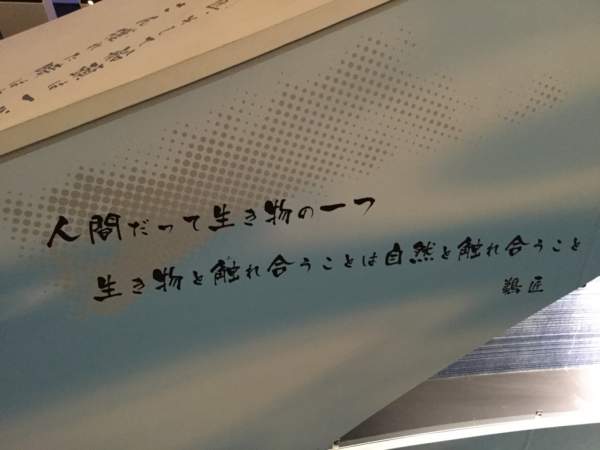 人間だって生き物の一つ
生き物と触れ合うことは自然と触れ合うこと
鵜匠